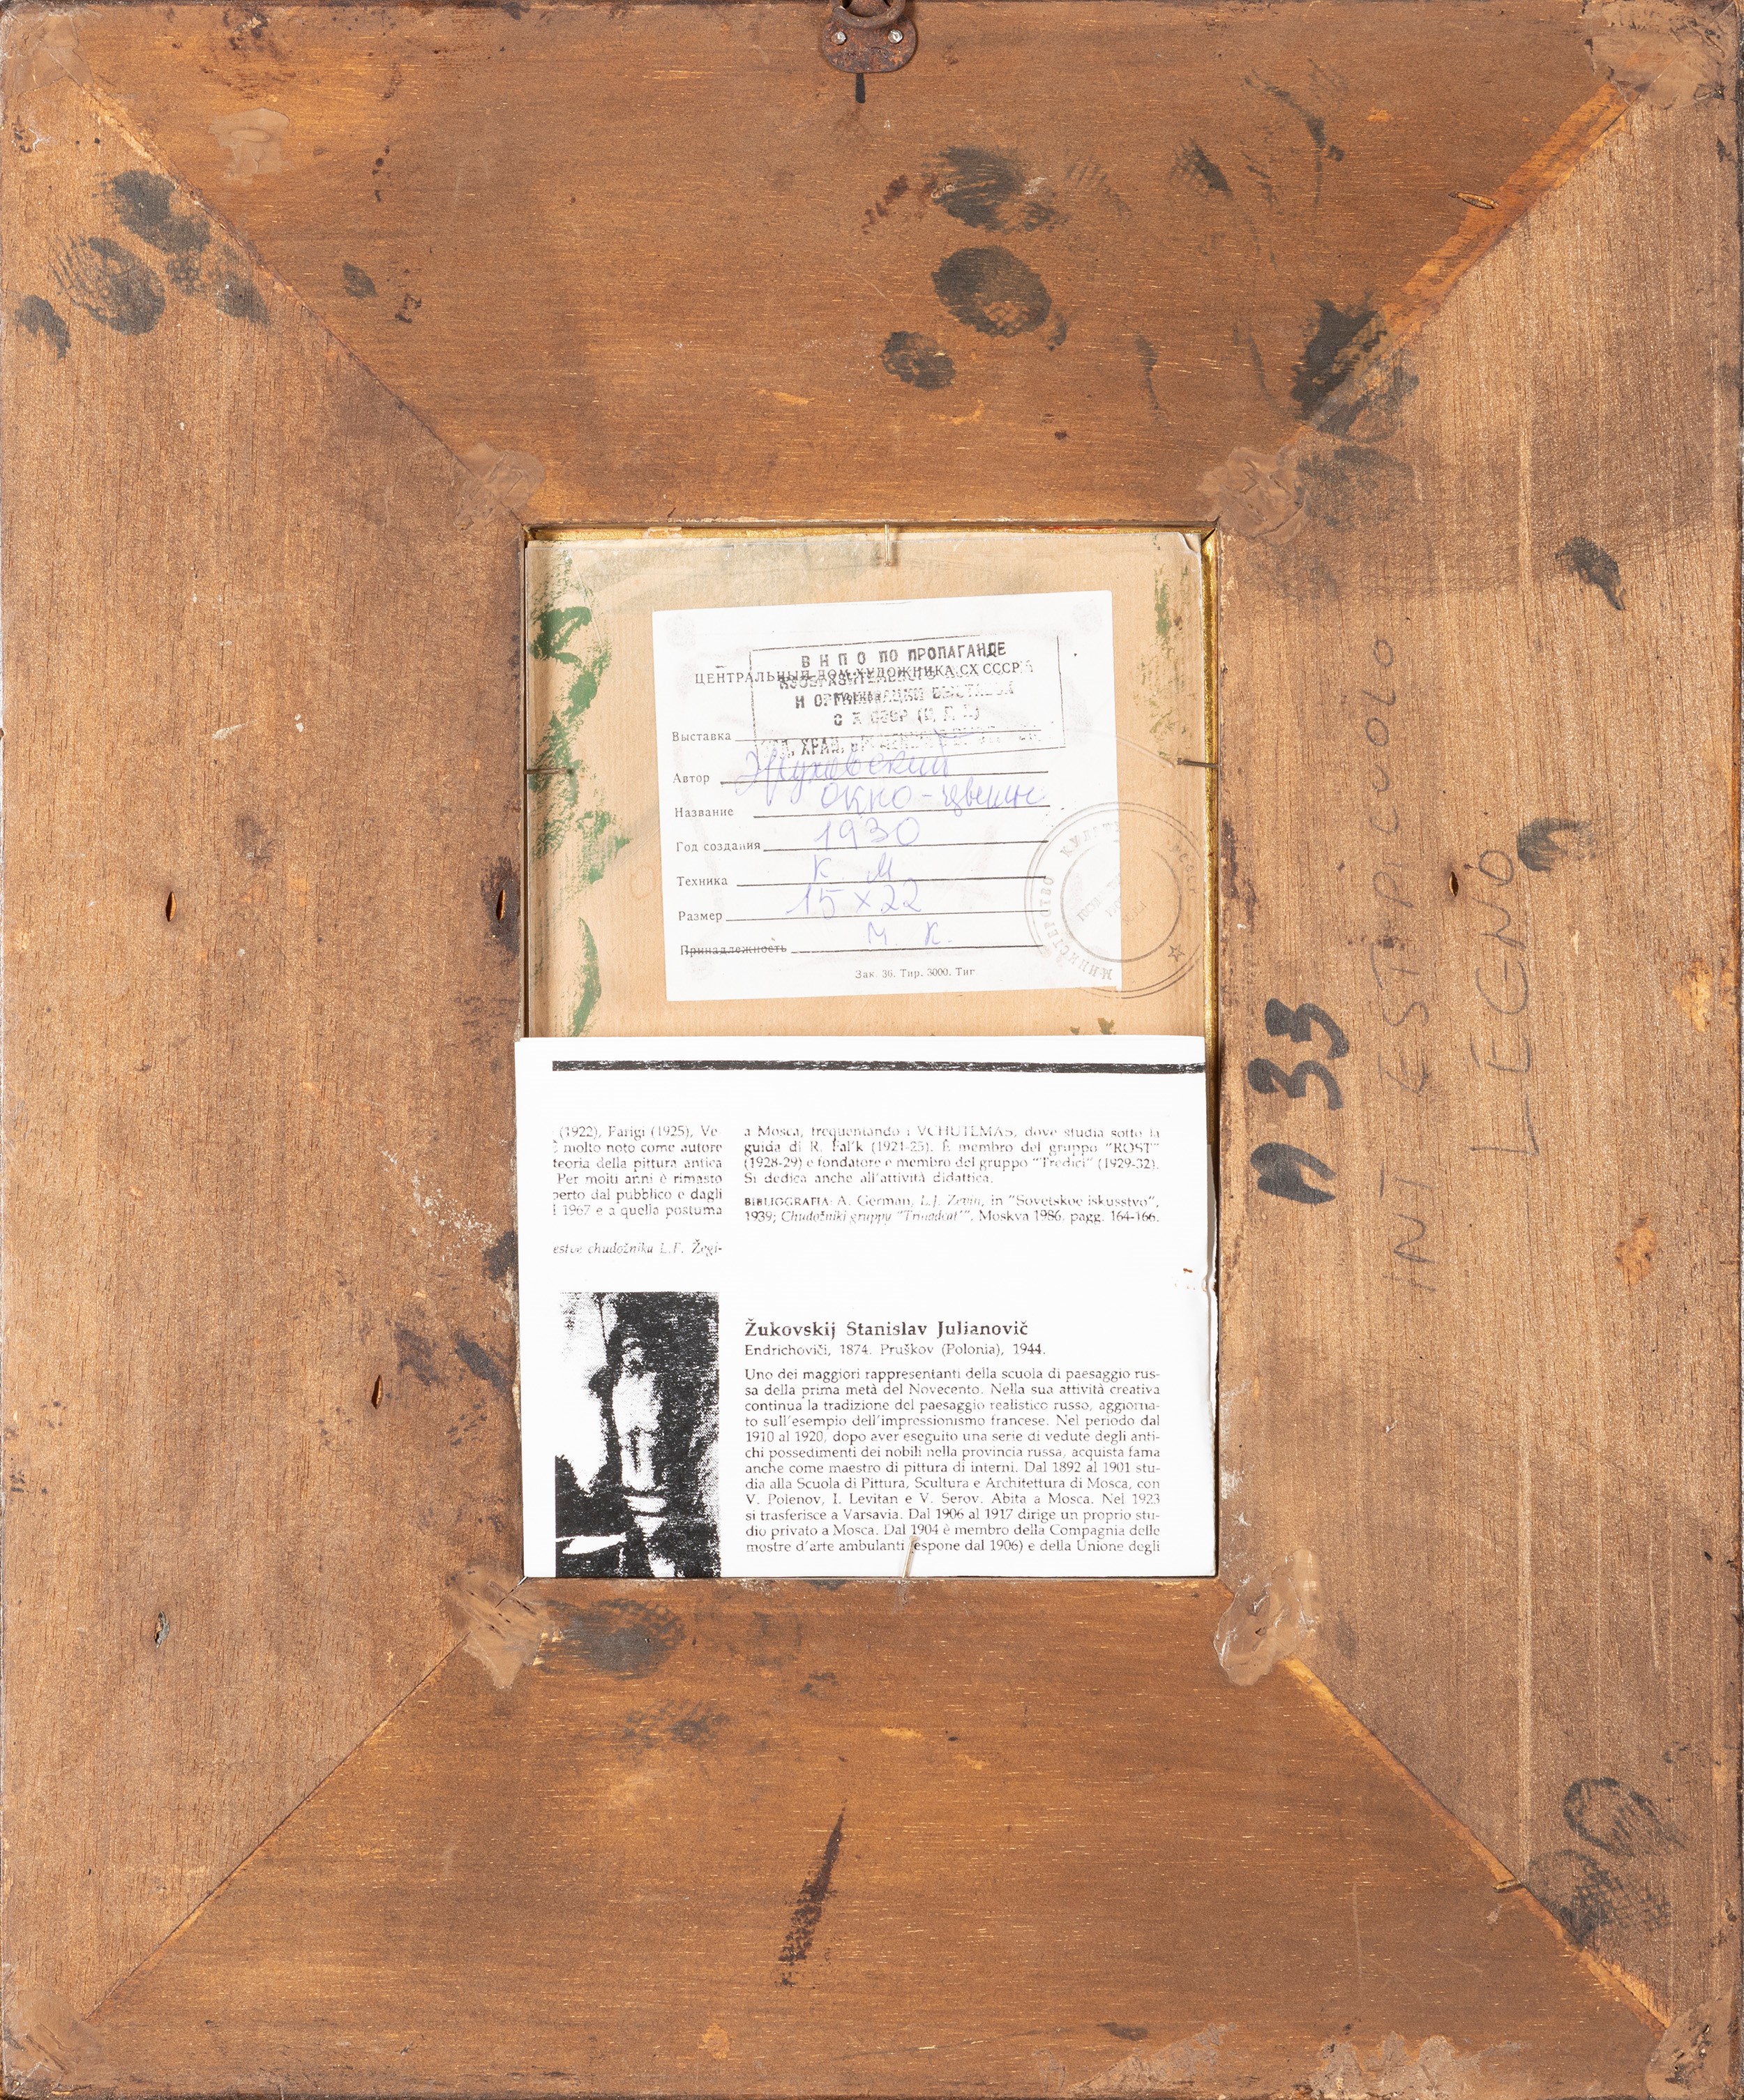 ВНПО ПО ПРОПАГАНДЕ
ЦЕНТРАЛЬНЫЙ ДОМ ХУДОЖНИКА СХ СССР
И ОРГАНИЗАЦИИ ВЫСТАВОК
СХ СССР
Выставка
Автор Жуковский
Название окно-цветы
Год создания 1930
Техника К. М
Размер 15 x 22
Принадлежность М. К.
Зак. 36. Тир. 3000. Тиг
МИНИСТЕРСТВО КУЛЬТУ
(1922), Parigi (1925), Ve-
molto noto come autore
teoria della pittura antica
Per molti anni è rimasto
perto dal pubblico e dagli
1967 e a quella postuma
estve chudožniku L.F. Žegi-
a Mosca, frequentando i VCHUTEMAS, dove studia sotto la
guida di R. Fal'k (1921-25). È membro del gruppo "ROST"
(1928-29) e fondatore e membro del gruppo "Tredici" (1929-32).
Si dedica anche all'attività didattica.
BIBLIOGRAFIA: A. German, L.J. Zevin, in "Sovetskoe iskusstvo",
1939; Chudožniki gruppy "Trinadcat'", Moskva 1986, pagg. 164-166.
Žukovskij Stanislav Julianovič
Endrichoviči, 1874. Pruškov (Polonia), 1944.
Uno dei maggiori rappresentanti della scuola di paesaggio rus-
sa della prima metà del Novecento. Nella sua attività creativa
continua la tradizione del paesaggio realistico russo, aggiorna-
to sull'esempio dell'impressionismo francese. Nel periodo dal
1910 al 1920, dopo aver eseguito una serie di vedute degli anti-
chi possedimenti dei nobili nella provincia russa, acquista fama
anche come maestro di pittura di interni. Dal 1892 al 1901 stu-
dia alla Scuola di Pittura, Scultura e Architettura di Mosca, con
V. Polenov, I. Levitan e V. Serov. Abita a Mosca. Nel 1923
si trasferisce a Varsavia. Dal 1906 al 1917 dirige un proprio stu-
dio privato a Mosca. Dal 1904 è membro della Compagnia delle
mostre d'arte ambulanti (espone dal 1906) e della Unione degli
A 33
INT EST PICUOLO
LEGNO